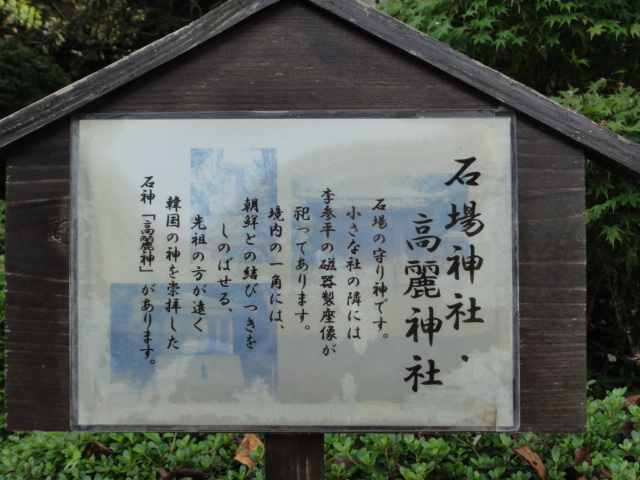 石場神社・
高麗神社
石場の守り神です。
小さな社の隣には
李参平の磁器製座像が
祀ってあります。
境内の一角には、
朝鮮との結びつきを
しのばせる、
先祖の方が遠く
韓国の神を崇拝した
石神「高麗神」があります。